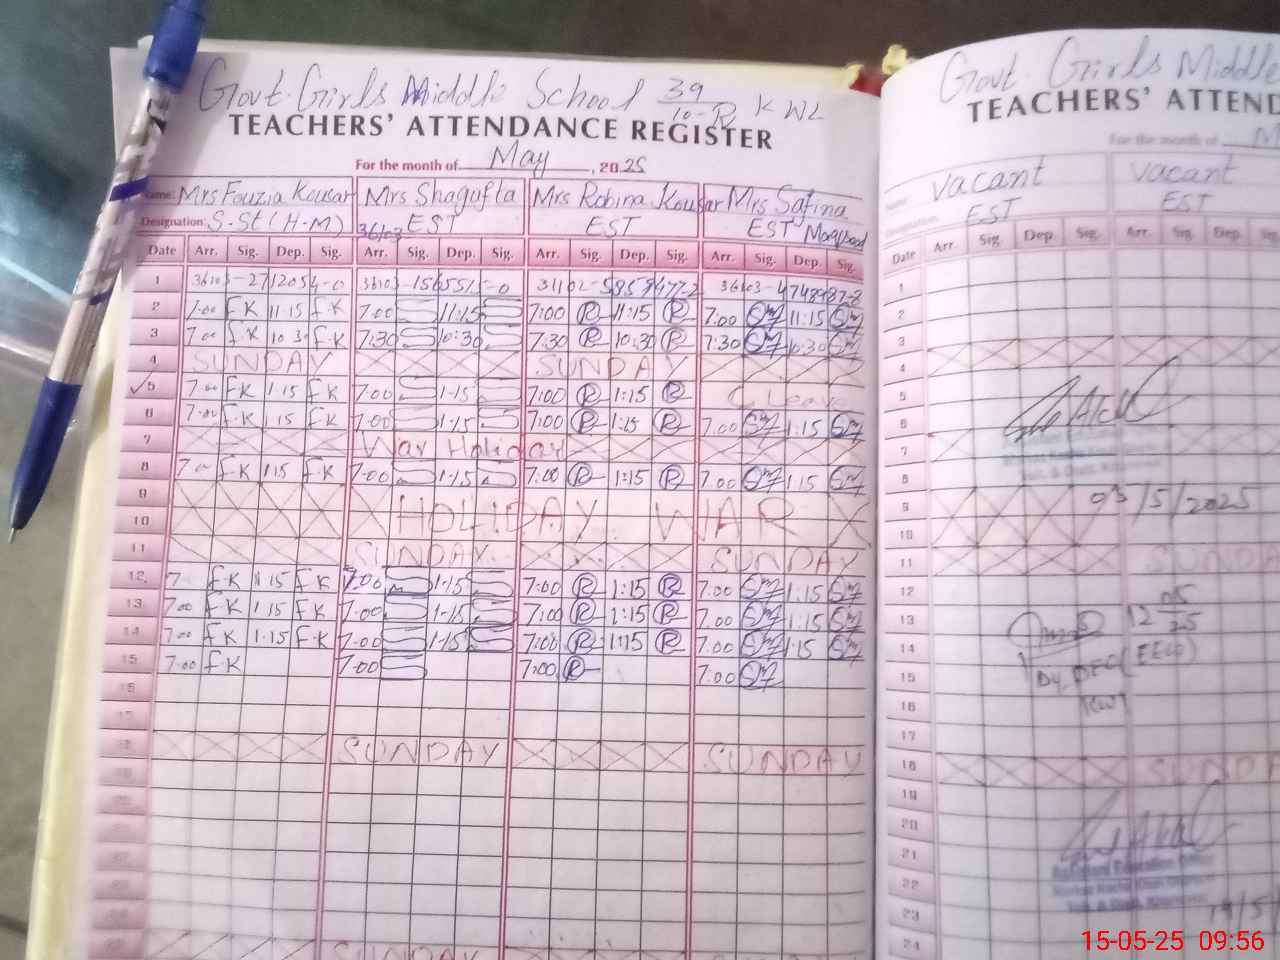 Govt. Girls Middle School 39/10-R KWL
TEACHERS' ATTENDANCE REGISTER
For the month of May, 2025
Name: Mrs Fouzia Kousar Mrs Shagufta Mrs Robina Kousar Mrs Safina
Designation: S-St (H-M) EST EST EST Maqsood
36103
Date Arr. Sig. Dep. Sig. Arr. Sig. Dep. Sig. Arr. Sig. Dep. Sig. Arr. Sig. Dep. Sig.
1
2 7:00 f.K 11:15 f.K 7:00 11:15 7:00 R 11:15 R 7:00 11:15
3 7:00 f.K 10:30 f.K 7:30 10:30 7:30 R 10:30 R 7:30 10:30
4 SUNDAY SUNDAY
5 7:00 f.K 1:15 f.K 7:00 1:15 7:00 R 1:15 R C Leave
6 7:00 f.K 1:15 f.K 7:00 1:15 7:00 R 1:15 R 7:00 1:15
7 War Holiday
8 7:00 f.K 1:15 f.K 7:00 1:15 7:00 R 1:15 R 7:00 1:15
9
10 HOLIDAY WAR
11 SUNDAY SUNDAY
12 7 f.K 1:15 f.K 7:00 1:15 7:00 R 1:15 R 7:00 1:15
13 7:00 f.K 1:15 f.K 7:00 1:15 7:00 R 1:15 R 7:00 1:15
14 7:00 f.K 1:15 f.K 7:00 1:15 7:00 R 1:15 R 7:00 1:15
15 7:00 f.K 7:00 7:00 R 7:00
16
17
18 SUNDAY SUNDAY
19
20
21
22
23
24
25 SUNDAY
Govt. Girls Middle
TEACHERS' ATTEND
For the month of M
Name: Vacant Vacant
Designation: EST EST
Date Arr. Sig. Dep. Sig. Arr. Sig. Dep. Sig.
1
2
3
4
5
6
7
8
9 03/5/2025
10
11 SUNDA
12
13 12 05/25
14
15 Dy. DEO (EE-W)
16 KWL
17
18 SUNDA
19
20
21
22
23
24
15-05-25 09:56